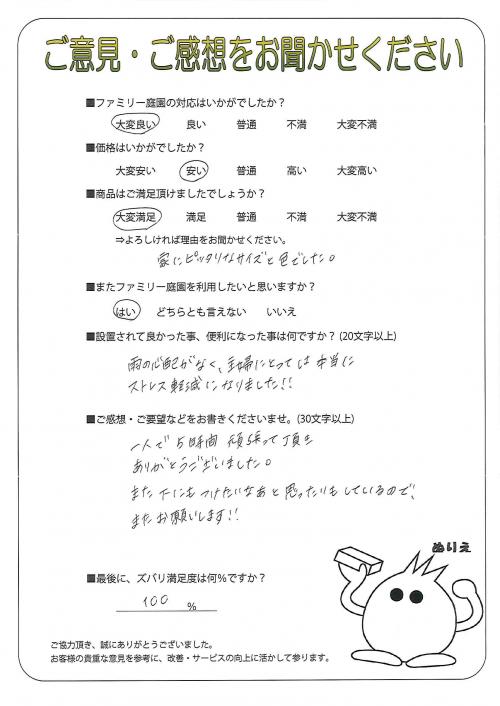 ご意見・ご感想をお聞かせください
■ファミリー庭園の対応はいかがでしたか？
大変良い 良い 普通 不満 大変不満
■価格はいかがでしたか？
大変安い 安い 普通 高い 大変高い
■商品はご満足頂けましたでしょうか？
大変満足 満足 普通 不満 大変不満
⇒よろしければ理由をお聞かせください。
家にピッタリなサイズと色でした。
■またファミリー庭園を利用したいと思いますか？
はい どちらとも言えない いいえ
■設置されて良かった事、便利になった事は何ですか？(20文字以上)
雨の心配がなく、主婦にとっては本当に
ストレス軽減になりました!!
■ご感想・ご要望などをお書きくださいませ。(30文字以上)
一人で5時間 頑張って頂き
ありがとうございました。
また下にもつけたいなあと思ったりもしているので、
またお願いします!!
ぬりえ
■最後に、ズバリ満足度は何％ですか？
100 %
ご協力頂き、誠にありがとうございました。
お客様の貴重な意見を参考に、改善・サービスの向上に活かして参ります。